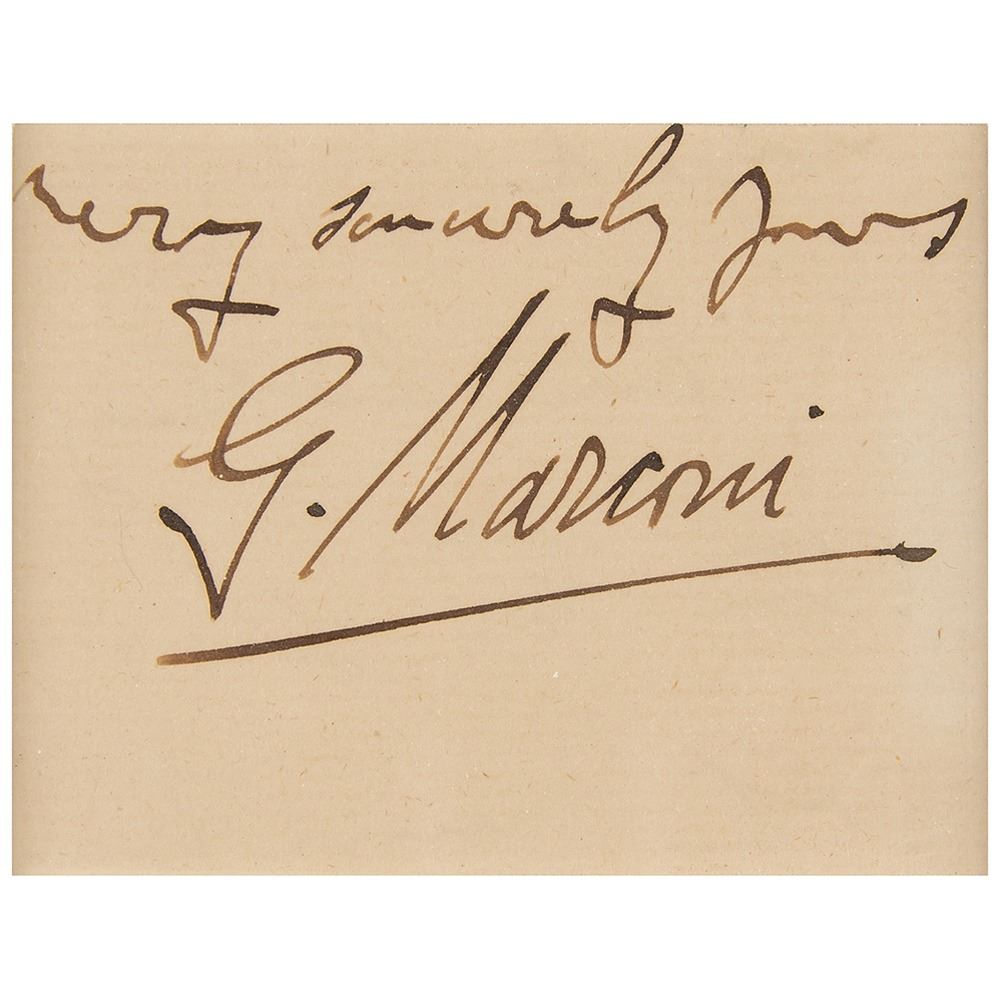 very sincerely yours
G. Marconi